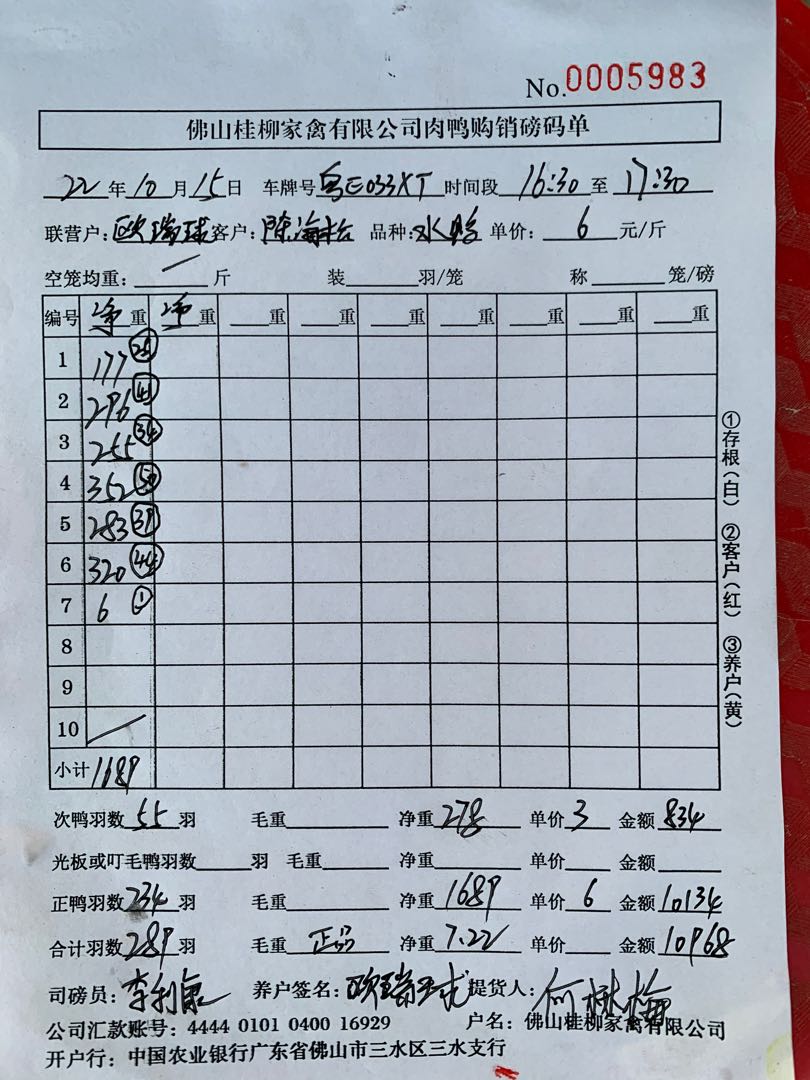 No.0005983
佛山桂柳家禽有限公司肉鸭购销磅码单
22年10月15日 车牌号粤E033XT 时间段 16:30 至 17:30
联营户:欧瑞球 客户:陈海松 品种:水鸭 单价: 6 元/斤
空笼均重: / 斤 装 羽/笼 称 笼/磅
编号 净重 净重 重 重 重 重 重 重 重
1 177 25
2 296 41
3 255 34
4 352 50
5 283 39
6 320 44
7 6 1
8
9
10 /
小计 1689
次鸭羽数 55 羽 毛重 净重 278 单价 3 金额 834
光板或叮毛鸭羽数 羽 毛重 净重 单价 金额
正鸭羽数 234 羽 毛重 净重 1689 单价 6 金额 10134
合计羽数 289 羽 毛重 正品 净重 7.22 单价 金额 10968
司磅员: 李利 养户签名: 欧瑞球 提货人: 何 梅
公司汇款账号: 4444 0101 0400 16929 户名: 佛山桂柳家禽有限公司
开户行: 中国农业银行广东省佛山市三水区三水支行
①存根(白) ②客户(红) ③养户(黄)